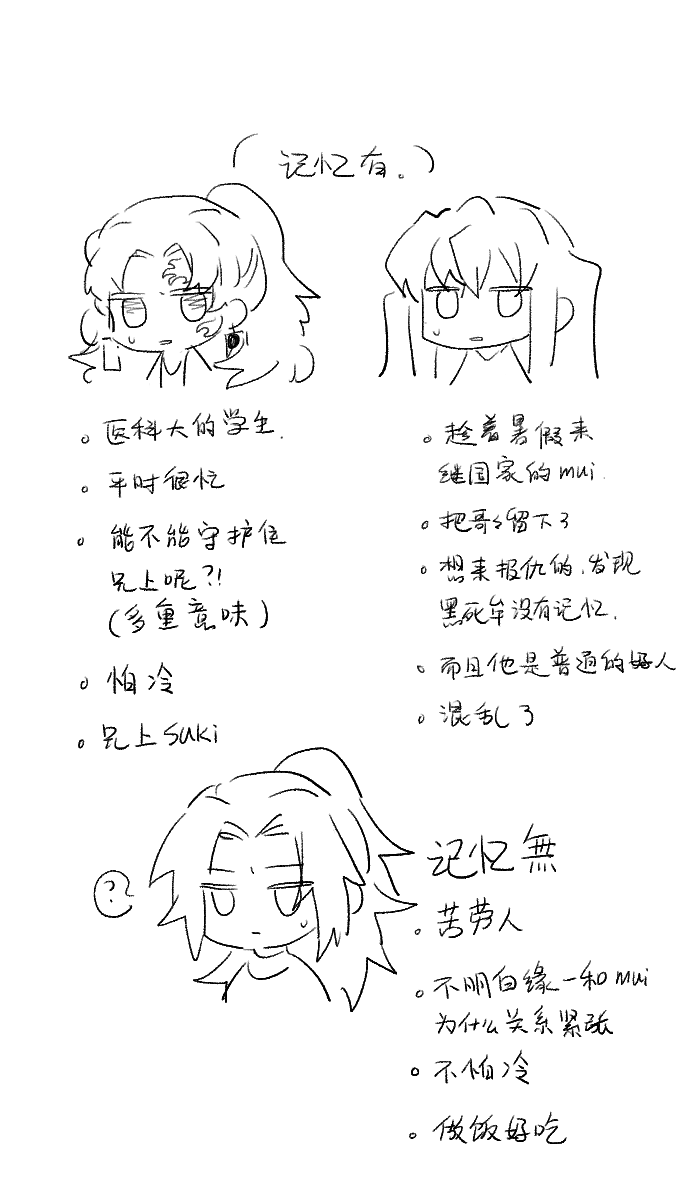 (记忆有。)
。医科大的学生.
。平时很忙
。能不能守护住
兄上呢?!
(多重意味)
。怕冷
。兄上suki
。趁着暑假来
继国家的mui.
。把哥々留下了
。想来报仇的.发现
黑死牟没有记忆.
。而且他是普通的好人
。混乱了
?
记忆無
。苦劳人
。不明白缘一和mui
为什么关系紧张
。不怕冷
。做饭好吃